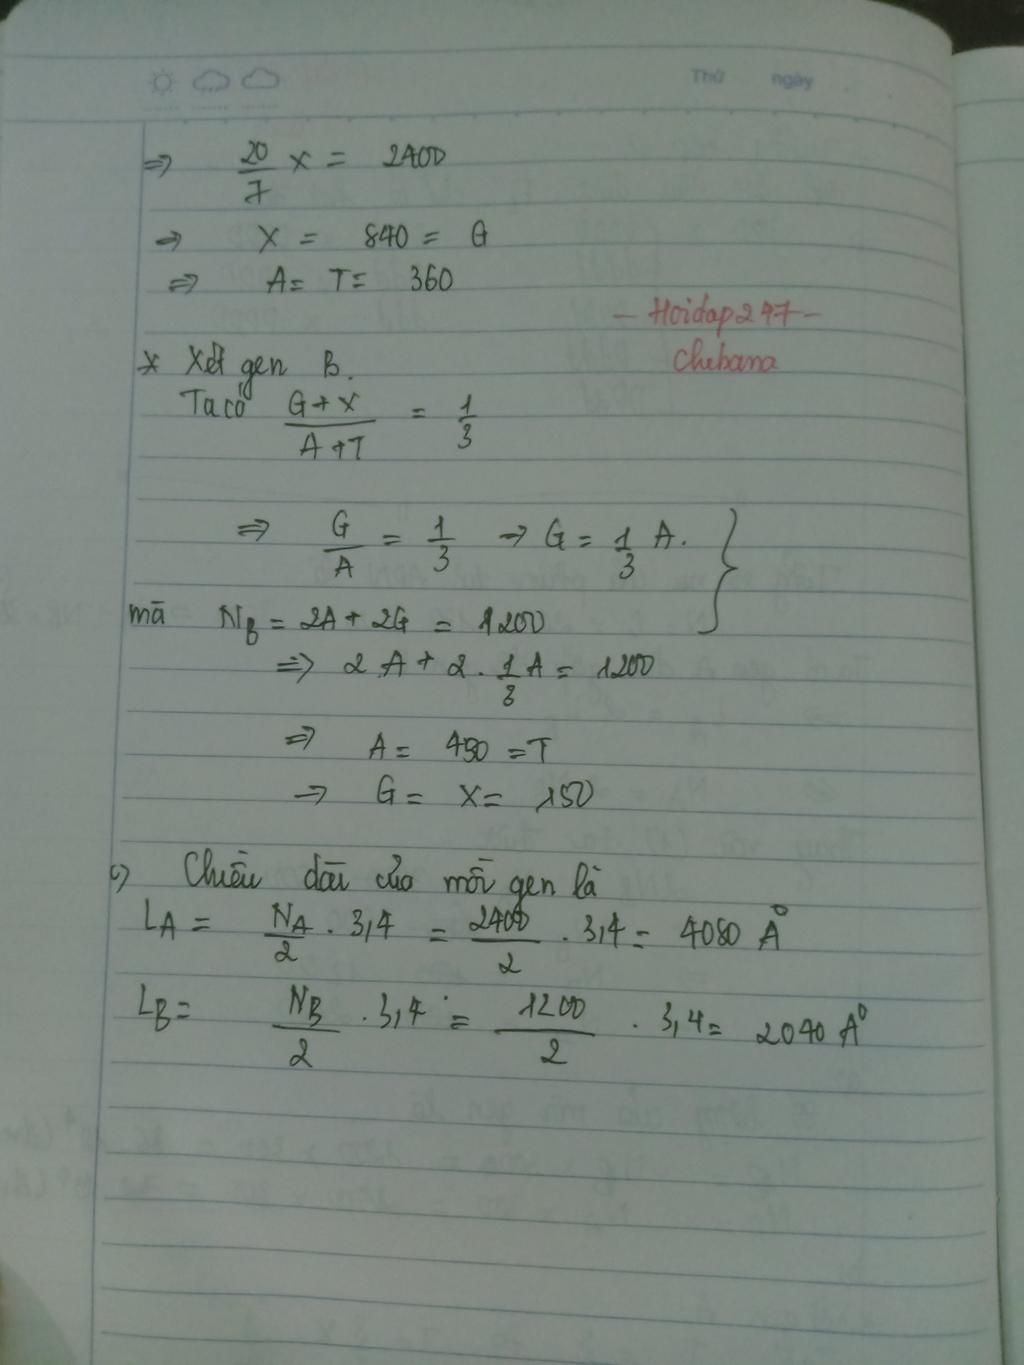 Thứ ngày
=> 20/7 X = 2400
=> X = 840 = G
=> A = T = 360
- Hoidap247 -
Chebana
* Xét gen B.
Ta có G+X/A+T = 1/3
=> G/A = 1/3 -> G = 1/3 A.
mà N_B = 2A + 2G = 1200
=> 2A + 2 . 1/3 A = 1200
=> A = 450 = T
=> G = X = 150
c) Chiều dài của mỗi gen là
L_A = N_A/2 . 3,4 = 2400/2 . 3,4 = 4080 A⁰
L_B = N_B/2 . 3,4 = 1200/2 . 3,4 = 2040 A⁰